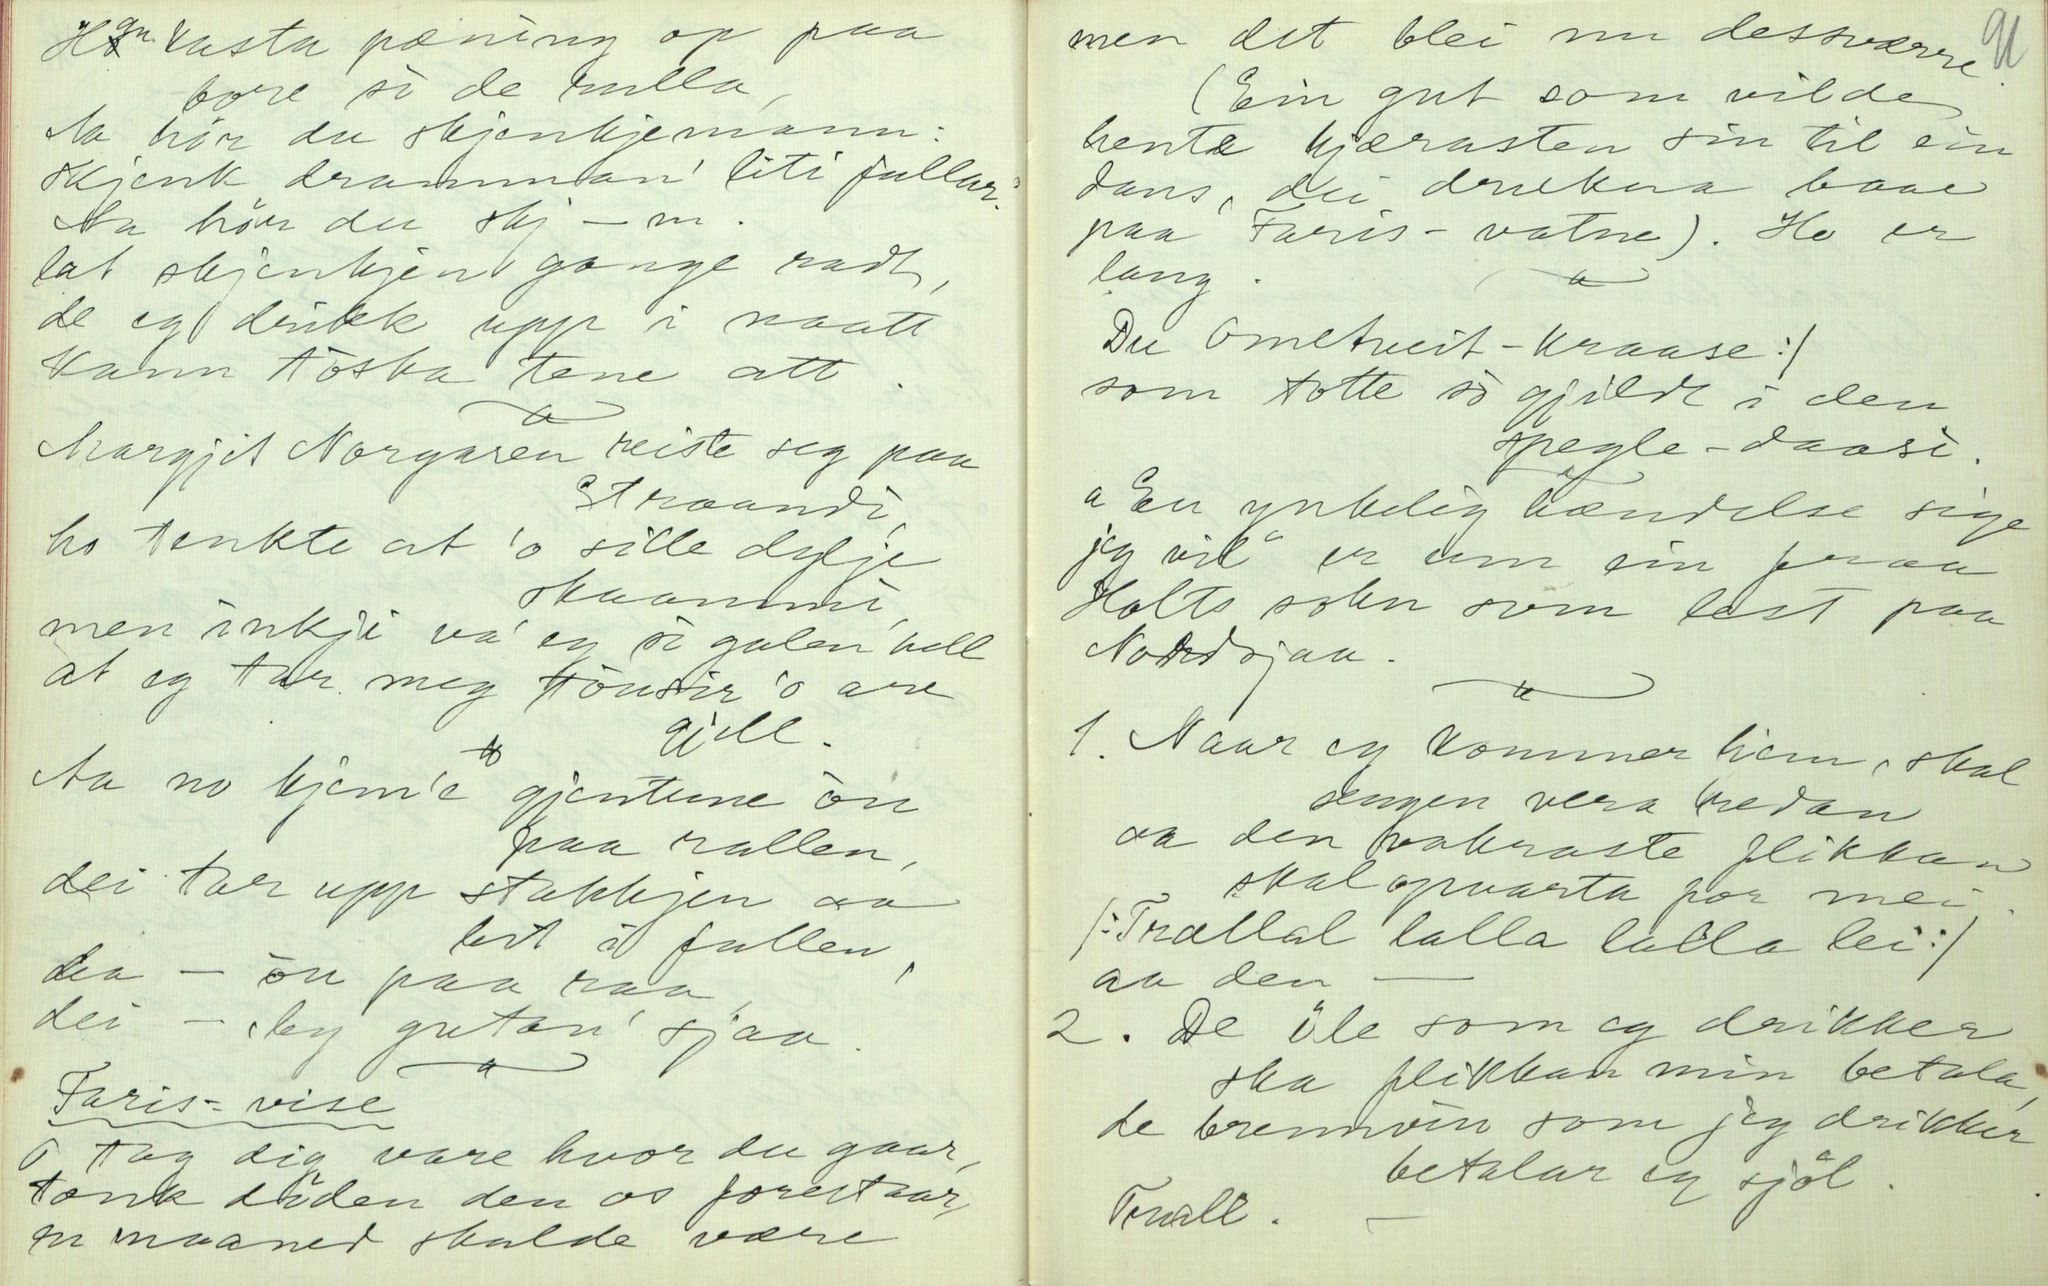 Han kasta pæning op paa
bore si de rulla,
Aa hör du skjenkjemann:
skjenk dramman' liti fullar.
Aa hör du skj – m.
lat skjenkjen gange radt,
de eg drikk upp i naatt
kann töska tene att.
Margjit Norgaren reiste seg paa
Straandi,
ho tenkte at 'o sille dylje
skaammi,
men inkji va' eg si galen hell
at eg tar meg tönsir 'o are
gjell.
Aa no kjem'e gjentune ön
paa rallen,
dei tar upp stakkjen aa
let i fallen,
dea – ön paa raa,
dei – leg gutan' sjaa.
Faris-vise
O tag dig vare hvor du gaar,
tænk düden den os forestaar,
en maaned skulde være
91
men det blei nu dessværre.
(Ein gut som vilde
henta kjærasten sin til ein
dans, dei drukna baae
paa Faris-vatne). Ho er
lang.
Du Ometveit-kraase :/
som totte só gjildt i den
spegle-daasi.
"En ynkelig hændelse sige
jeg vil" er um ein fraa
Holts sokn som lest paa
Nordsjaa.
1. Naar eg kommer hiem, skal
sengen vera redan
aa den vakraste flikkan
skal opvarta for mei.
/:Trallal lalla lalla lei:/
aa den —
2. De öle som eg drikker
ska flikkan min betala,
de brennvin som jeg drikker
betalar eg sjöl.
Trall. —